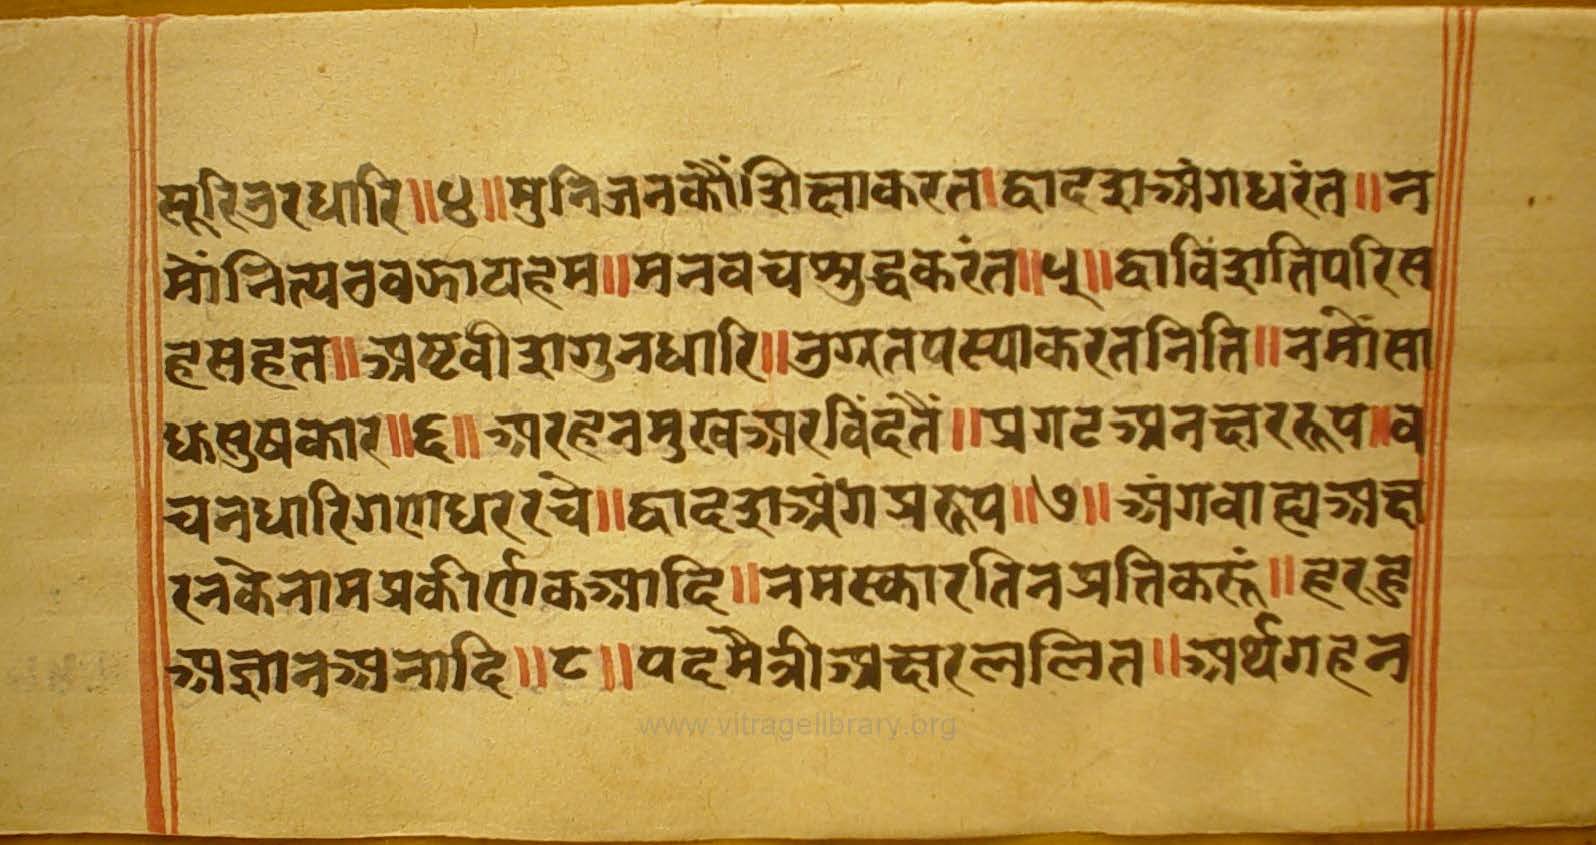 सूरि उरधारि॥४॥मुनिजनकौंशिक्षाकरत।द्वादशअंगधरंत॥न
मोंनित्यउवझायहम॥मनवचशुद्धकरंत॥५॥द्वाविंशतिपरिस
हसहत॥अष्टवीशगुनधारि॥उग्रतपस्याकरतनिति॥नमोंसा
धसुषकार॥६॥अरहनमुखअरविंदतैं॥प्रगटअनक्षररूप॥व
चनधारिगणधररचे॥द्वादशअंगप्ररूप॥७॥अंगवाह्यअक्ष
रनकेनामप्रकीर्णकआदि॥नमस्कारतिनप्रतिकरूं॥हरहु
अज्ञानअनादि॥८॥पदमैत्रीअक्षरललित॥अर्थगहन
www.vitragelibrary.org